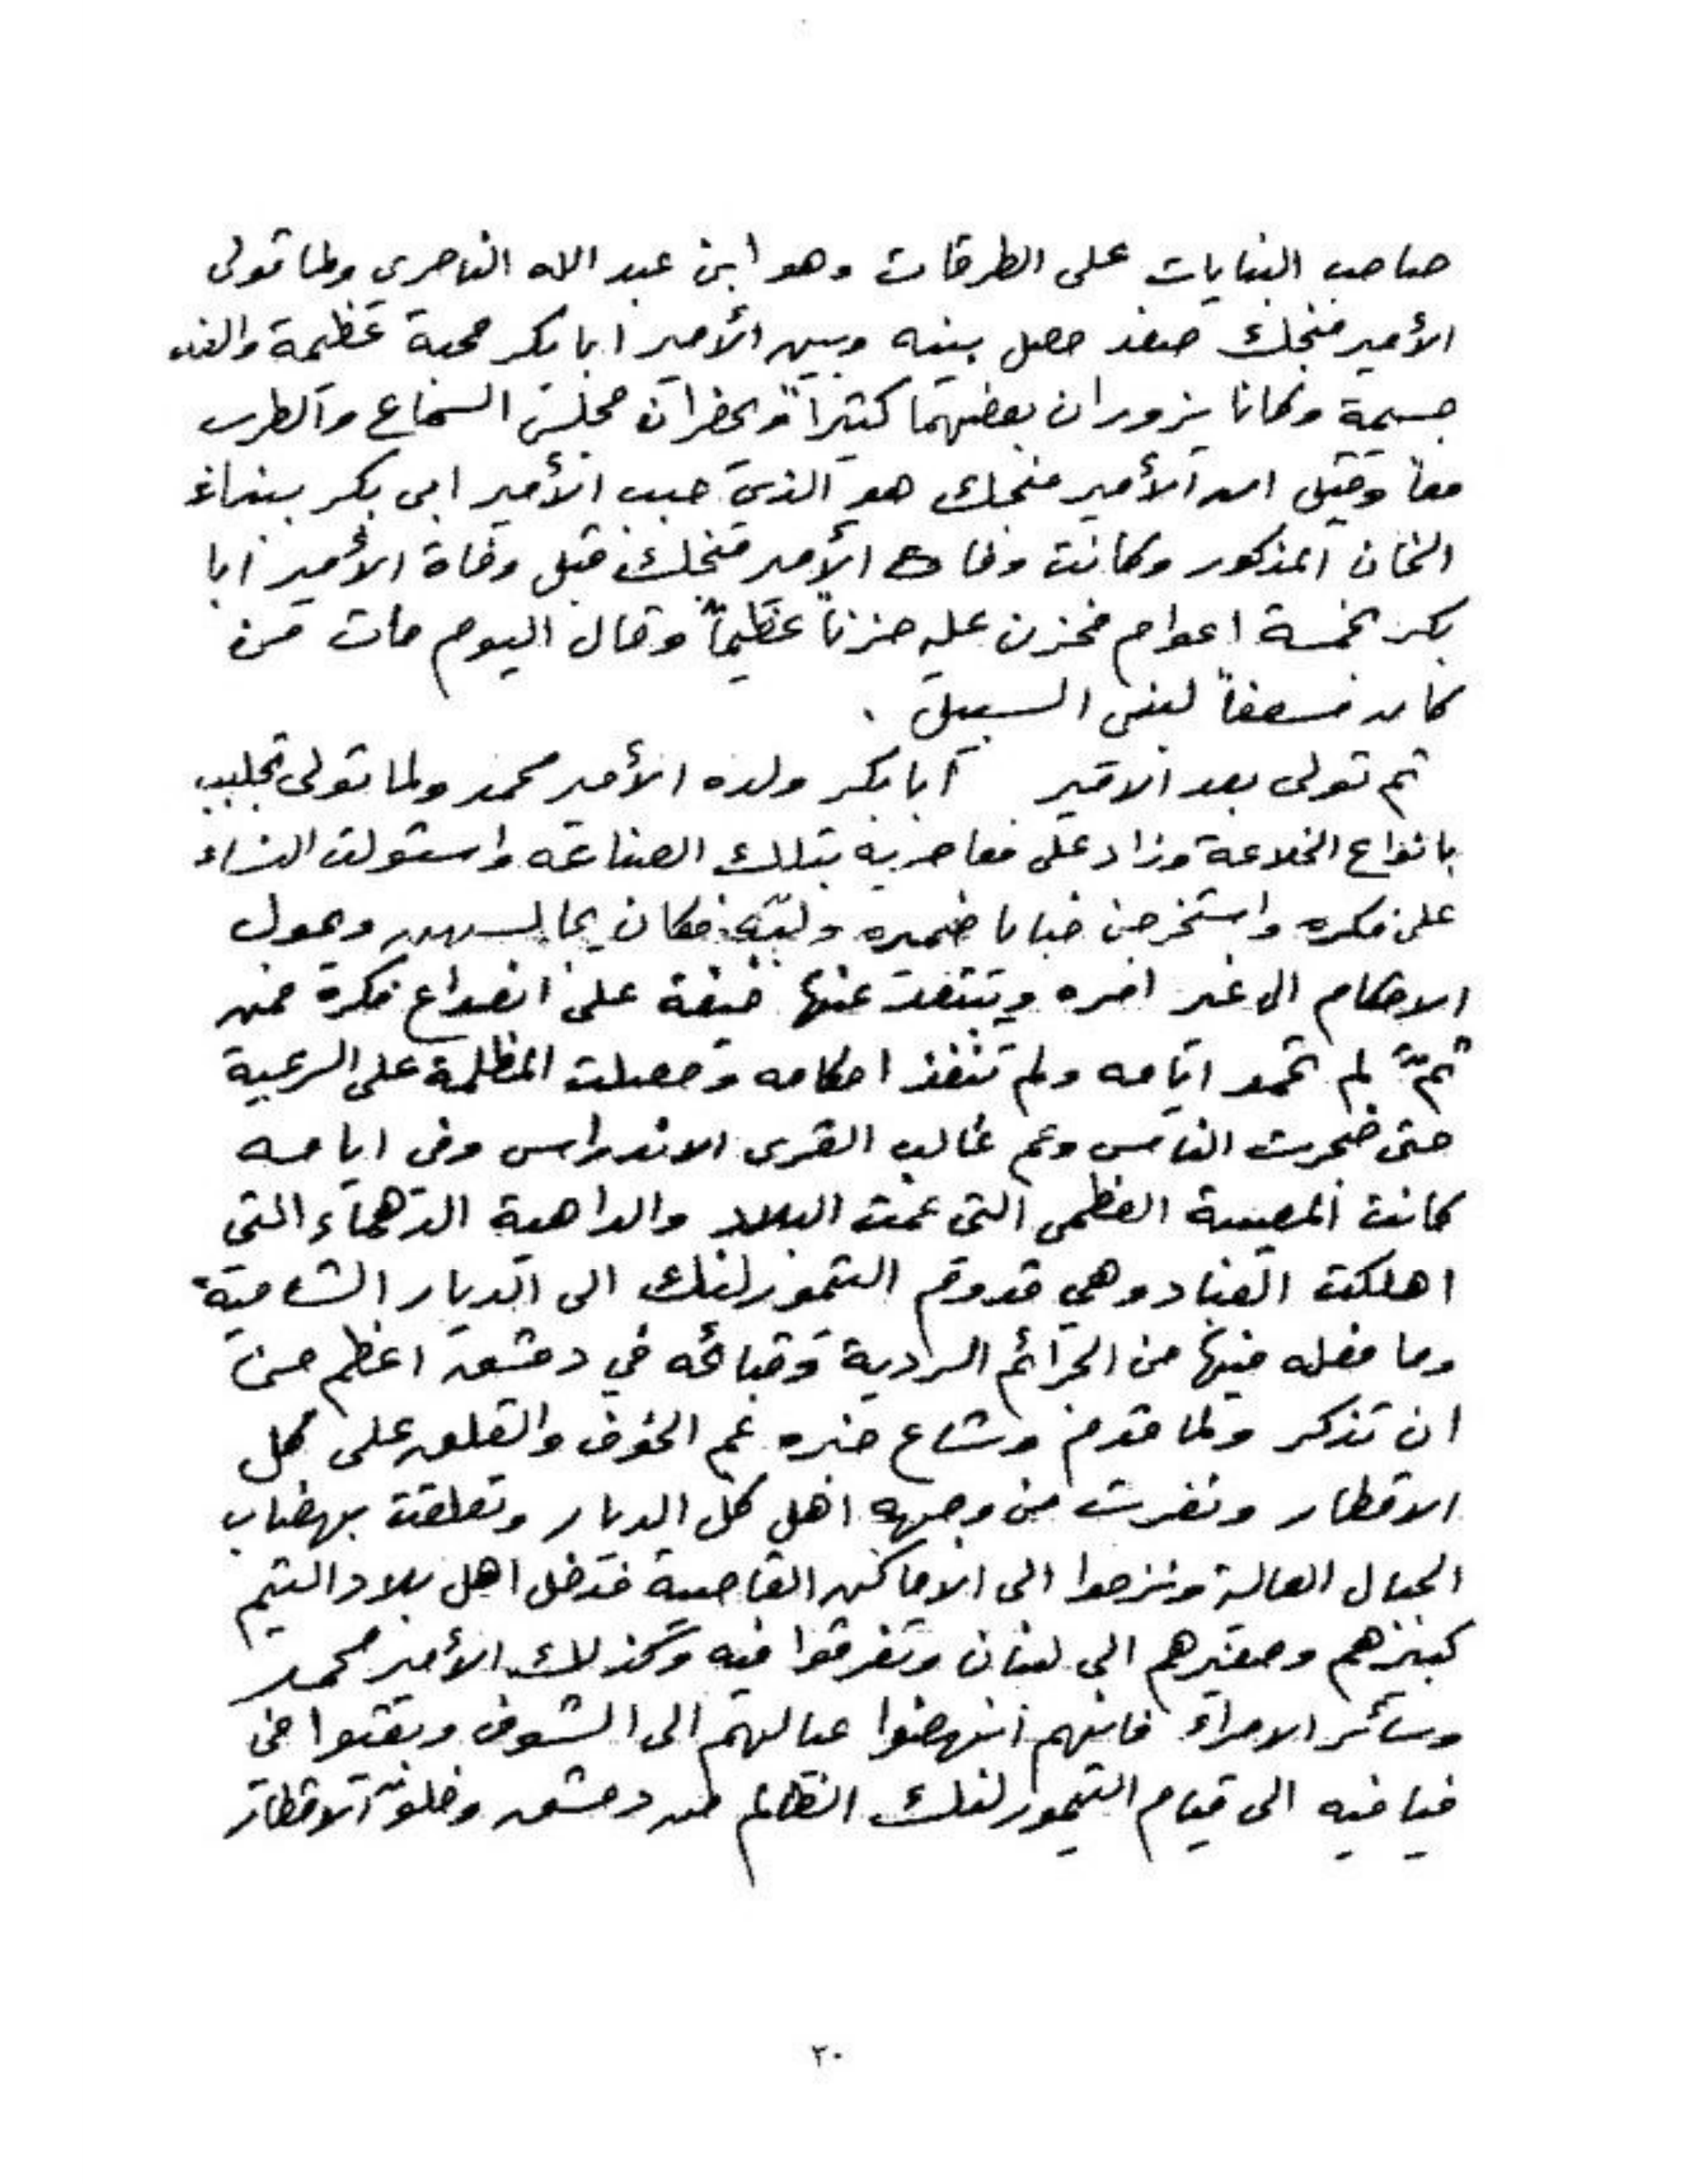 صاحب البنايات على الطرقات وهو ابن عبد الله الناصري ولما تولى
الأمير منجك صفد حصل بينه وبين الأمير ابا بكر محبة عظيمة والفة
جسيمة وكانا يزوران بعضهما كثيراً ويحضران مجلس السماع والطرب
معاً وقيل ان الأمير منجك هو الذي حبب الأمير ابي بكر ببناء
الخان المذكور وكانت وفاة الأمير منجك قبل وفاة الأمير ابا
بكر بخمسة اعوام فحزن عليه حزناً عظيماً وقال اليوم مات من
كان مسعفاً لبني السبيل .
ثم تولى بعد الامير ابا بكر ولده الأمير محمد ولما تولى تجلبب
بانواع الخلاعة وزاد على معاصريه بتلك الصناعه واستولت النساء
على فكره واستخرجن خبايا ضميره ولبّه فكان يجالسهن ويحول
الاحكام الى غير امره ويتنقد عنها خيفة على انصداع فكرة فمن
ثمّ لم تحمد ايامه ولم تنفذ احكامه وحصلت المظلمة على الرعية
حتى ضجرت الناس وعم غالب القرى الاندراس وفي ايامه
كانت المصيبة العظمى التي عمّت البلاد والداهية الدهماء التي
اهلكت العباد وهي قدوم التمورلنك الى الديار الشامية
وما فعله فيها من الجرائم الردية وقبائحه في دمشق اعظم من
ان تذكر ولما قدم وشاع خبره عم الخوف والقلق على كل
الاقطار ونفرت من وجهه اهل كل الديار وتعلقت بهضاب
الجبال العالية ونزحوا الى الاماكن القاصية فدخل اهل بلاد التيم
كبيرهم وصغيرهم الى لبنان وتفرقوا فيه وكذلك الأمير محمد
وسائر الامراء فانهم انهضوا عيالهم الى الشوف وبقيوا في
فيافيه الى قيام التيمورلنك الظالم من دمشق وخلوّ الاقطار
٢٠